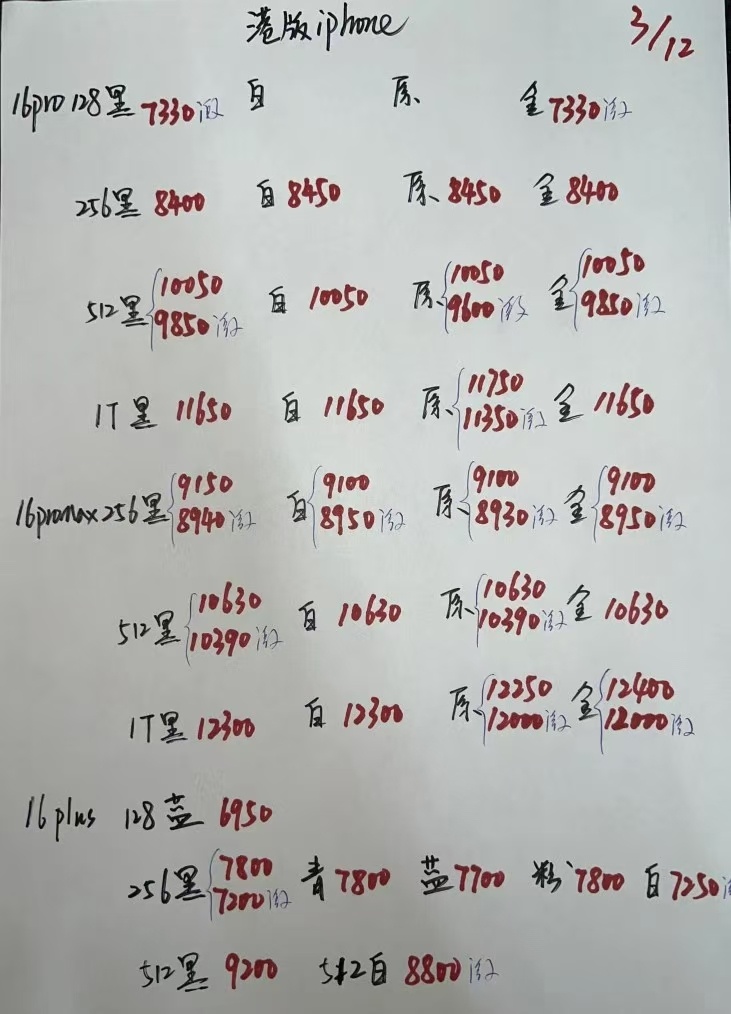 港版iphone 3/12
16pro 128黑 7330激 白 原、 金 7330激
256黑 8400 白 8450 原、8450 金 8400
512黑 10050 9850激 白 10050 原、10050 9600激 金 10050 9850激
1T黑 11650 白 11650 原、11750 11350激 金 11650
16promax 256黑 9150 8940激 白 9100 8950激 原、9100 8930激 金 9100 8950激
512黑 10630 10390激 白 10630 原、10630 10390激 金 10630
1T黑 12300 白 12300 原、12250 12000激 金 12400 12000激
16 plus 128蓝 6950
256黑 7800 7200激 青 7800 蓝 7700 粉 7800 白 7250激
512黑 9200 512白 8800激